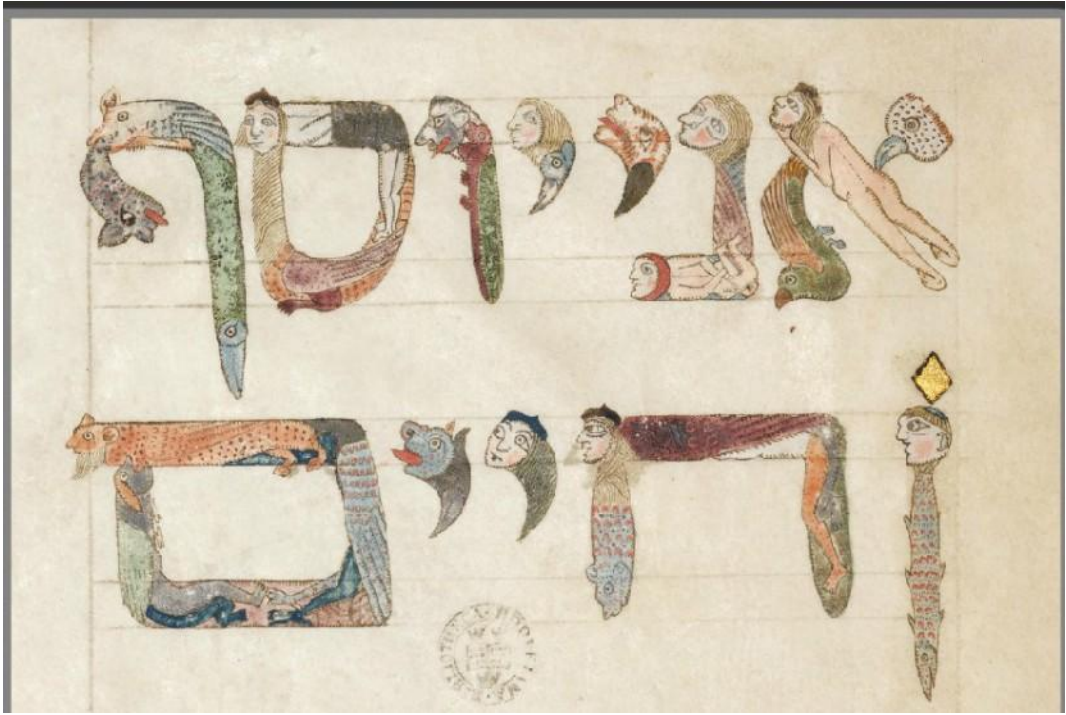 אני יוסף
ן חיים